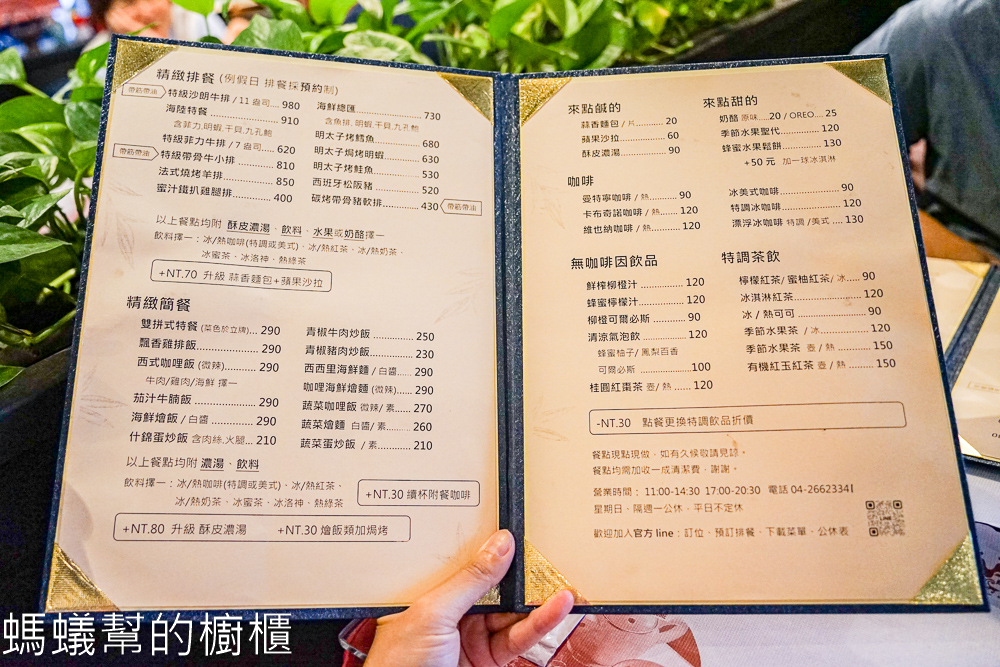 精緻排餐 (例假日 排餐採預約制)
帶筋帶油 特級沙朗牛排 / 11 盎司.... 980
海陸特餐 ................ 910
含菲力,明蝦,干貝,九孔鮑
特級菲力牛排 / 7 盎司..... 620
帶筋帶油 特級帶骨牛小排 ............ 810
法式燒烤羊排 ............... 850
蜜汁鐵扒雞腿排............. 400
海鮮總匯 ........................ 730
含魚排, 明蝦,干貝,九孔鮑
明太子烤鱈魚 ................ 680
明太子焗烤明蝦............... 630
明太子烤鮭魚................. 530
西班牙松阪豬 ................ 520
碳烤帶骨豬軟排.............. 430 帶筋帶油
以上餐點均附 酥皮濃湯、飲料、水果或奶酪擇一
飲料擇一：冰/熱咖啡(特調或美式)、冰/熱紅茶、冰/熱奶茶、
冰蜜茶、冰洛神、熱綠茶
+NT.70 升級 蒜香麵包+蘋果沙拉
精緻簡餐
雙拼式特餐 (菜色於立牌).... 290
飄香雞排飯....................... 290
西式咖哩飯 (微辣)............. 290
牛肉/雞肉/海鮮 擇一
茄汁牛腩飯 ...................... 290
海鮮燴飯 / 白醬 ................. 290
什錦蛋炒飯 含肉絲,火腿... 210
青椒牛肉炒飯 ................... 250
青椒豬肉炒飯 ................... 230
西西里海鮮麵 / 白醬...... 290
咖哩海鮮燴麵 (微辣)...... 290
蔬菜咖哩飯 微辣/ 素........ 270
蔬菜燴麵 白醬/ 素........... 260
蔬菜蛋炒飯 / 素............... 210
以上餐點均附 濃湯、飲料
飲料擇一：冰/熱咖啡(特調或美式)、冰/熱紅茶、
冰/熱奶茶、冰蜜茶、冰洛神、熱綠茶
+NT.30 續杯附餐咖啡
+NT.80 升級 酥皮濃湯 +NT.30 燴飯類加焗烤
來點鹹的
蒜香麵包 / 片............. 20
蘋果沙拉.................... 60
酥皮濃湯.................... 90
來點甜的
奶酪 原味....20 / OREO.... 25
季節水果聖代................ 120
蜂蜜水果鬆餅................ 130
+50 元 加一球冰淇淋
咖啡
曼特寧咖啡 / 熱.......... 90
卡布奇諾咖啡 / 熱....... 120
維也納咖啡 / 熱.......... 120
冰美式咖啡..................... 90
特調冰咖啡..................... 120
漂浮冰咖啡 特調 /美式 .... 130
無咖啡因飲品
鮮榨柳橙汁 .............. 120
蜂蜜檸檬汁............... 120
柳橙可爾必斯 ........... 90
清涼氣泡飲............... 120
蜂蜜柚子/ 鳳梨百香
可爾必斯 ................100
桂圓紅棗茶 壺/ 熱 ...... 120
特調茶飲
檸檬紅茶/ 蜜柚紅茶/ 冰..... 90
冰淇淋紅茶..................... 120
冰 / 熱可可 .................... 90
季節水果茶 / 冰.............. 120
季節水果茶 壺 / 熱 ......... 150
有機紅玉紅茶 壺 / 熱 ...... 150
-NT.30 點餐更換特調飲品折價
餐點現點現做，如有久候敬請見諒。
餐點均需加收一成清潔費，謝謝。
營業時間： 11:00-14:30 17:00-20:30 電話 04-26623341
星期日、隔週一公休，平日不定休
歡迎加入官方 line：訂位、預訂排餐、下載菜單、公休表
LINE
螞蟻幫的櫥櫃